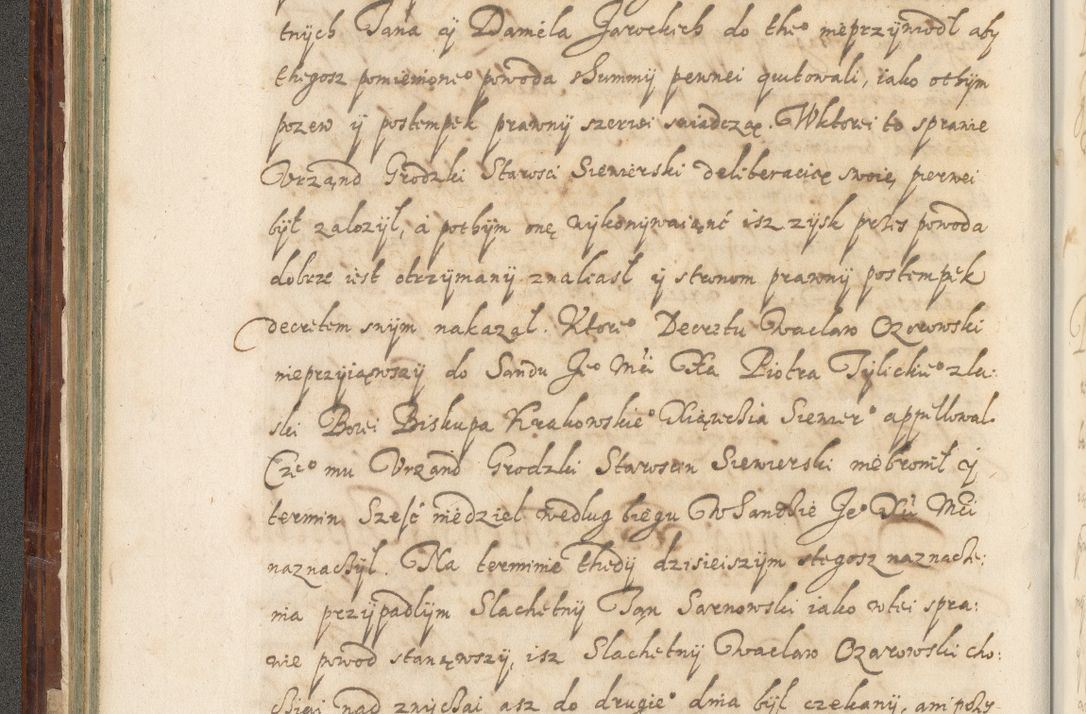 tnÿch Jana ÿ Daniela Jarockich do theº nieprzÿwiodł abÿ
thegosz pomienioneº powoda zSummÿ pewnei quitowali, iako othÿm
pozew ÿ postempek prawnÿ szerzei swiadczą. Wktorei to sprawie
Vrząnd Grodzki Starosci Siewierski deliberacią swoię pierwei
bÿł załozÿł, á pothÿm onę wÿkonÿwaiąnć isz zÿsk przes powoda
dobrze iest otrzÿmanÿ znalaasł ÿ stronom prawnÿ postempek
decretem snÿm nakazał. Ktoreº Decretu Waclaw Ozorowski
nieprzÿiąwszÿ do Sandu Jeº Mći Xa Piotra Tÿlickieº zła:
ski Bozei Biskupa Krakowskieº Xiązecthia Siewierº appellował.
Czeº mu Vrzand Grodzki Staroscin Siewierski niebronił ÿ
termin Sześć niedziel według biegu WSandzie Jeº Xii Mći
naznaczÿł. Na terminie thedÿ dzisieiszÿm stegosz naznacze:
nia przÿpadłÿm Slachetnÿ Jąn Sarnowski iako wtei spra:
wie powod stanąwszÿ, isz Slachetnÿ Wacław Ozarowski cho:
ciai nad zwÿczai asz do drugieº dnia bÿł czekanÿ, ani przÿ-